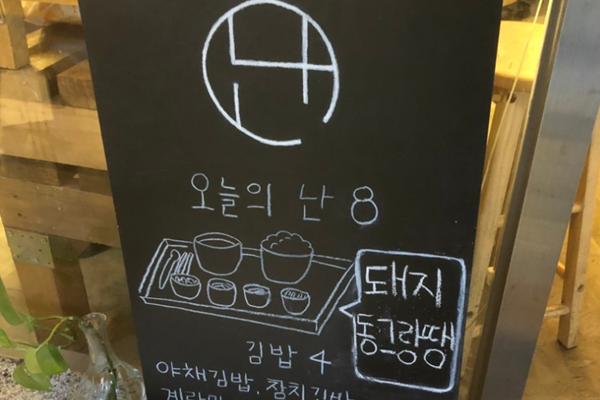 난
오늘의 난 8
돼지
동그랑땡
김밥 4
야채김밥, 참치김밥